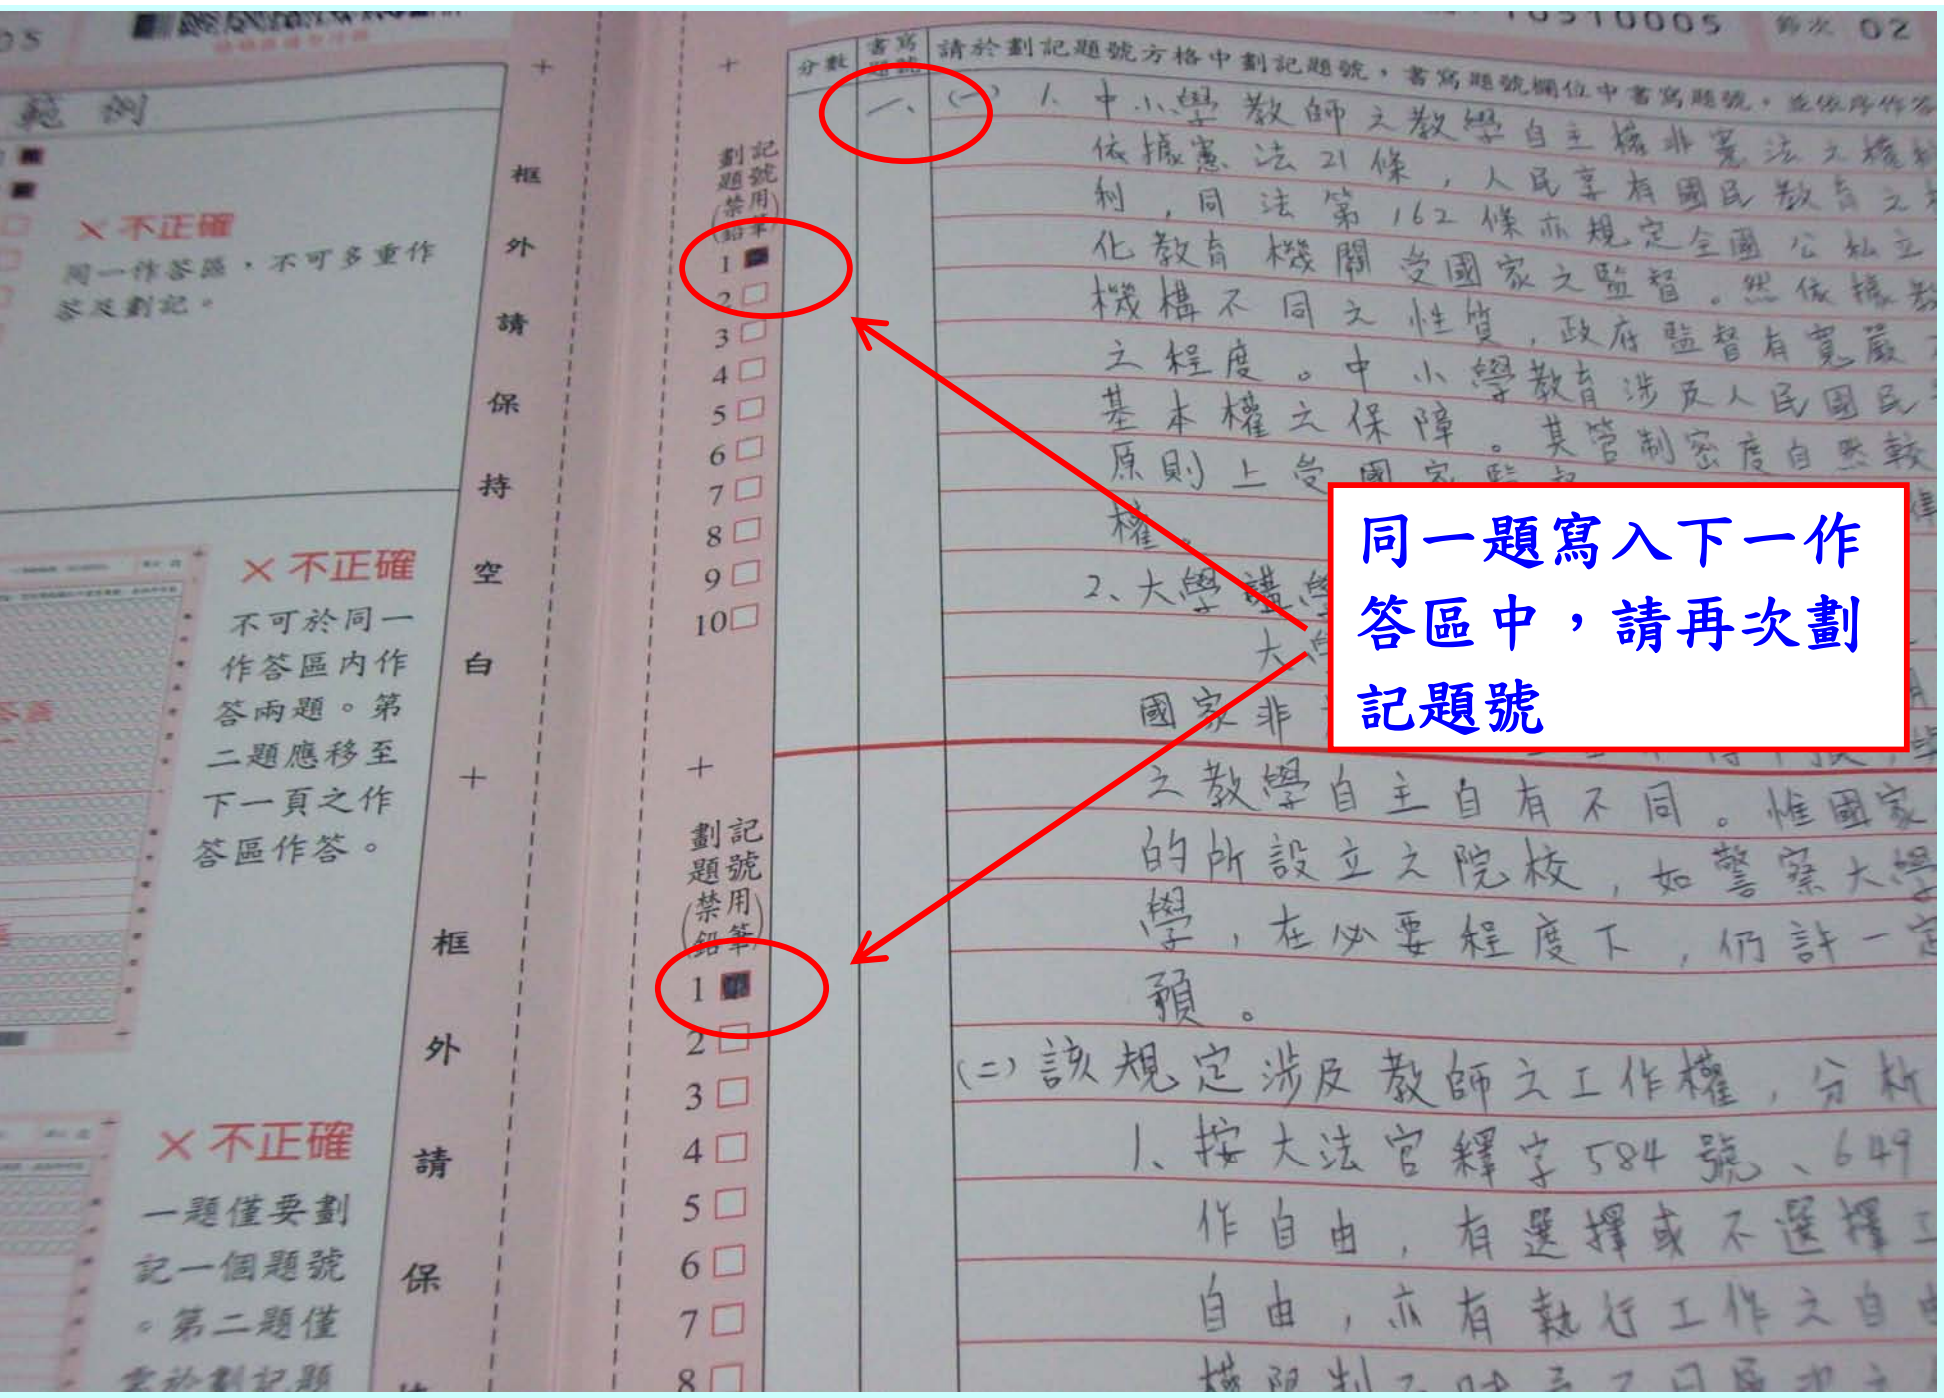 05
10510005
02
範例
× 不正確
同一作答區，不可多重作
答及劃記。
× 不正確
不可於同一
作答區內作
答兩題。第
二題應移至
下一頁之作
答區作答。
× 不正確
一題僅要劃
記一個題號
。第二題僅
框外請保持空白
框外請保
分數
書寫題號
請於劃記題號方格中劃記題號，書寫題號欄位中書寫題號，並依序作答
劃記題號
(禁用鉛筆)
1
2
3
4
5
6
7
8
9
10
一、
(一) 1、中小學教師之教學自主權非憲法之權利
依據憲法21條，人民享有國民教育之
利，同法第162條亦規定全國公私立
化教育機關受國家之監督。然依據
機構不同之性質，政府監督有寬嚴
之程度。中小學教育涉及人民國民
基本權之保障。其管制密度自然較
原則上受國家監
權。
2、大學講學
大學
國家非
同一題寫入下一作
答區中，請再次劃
記題號
劃記題號
(禁用鉛筆)
1
2
3
4
5
6
7
8
之教學自主自有不同。惟國家
的所設立之院校，如警察大學
學，在必要程度下，仍許一定
預。
(二)該規定涉及教師之工作權，分析
1、按大法官釋字584號、649
作自由，有選擇或不選擇工
自由，亦有執行工作之自由